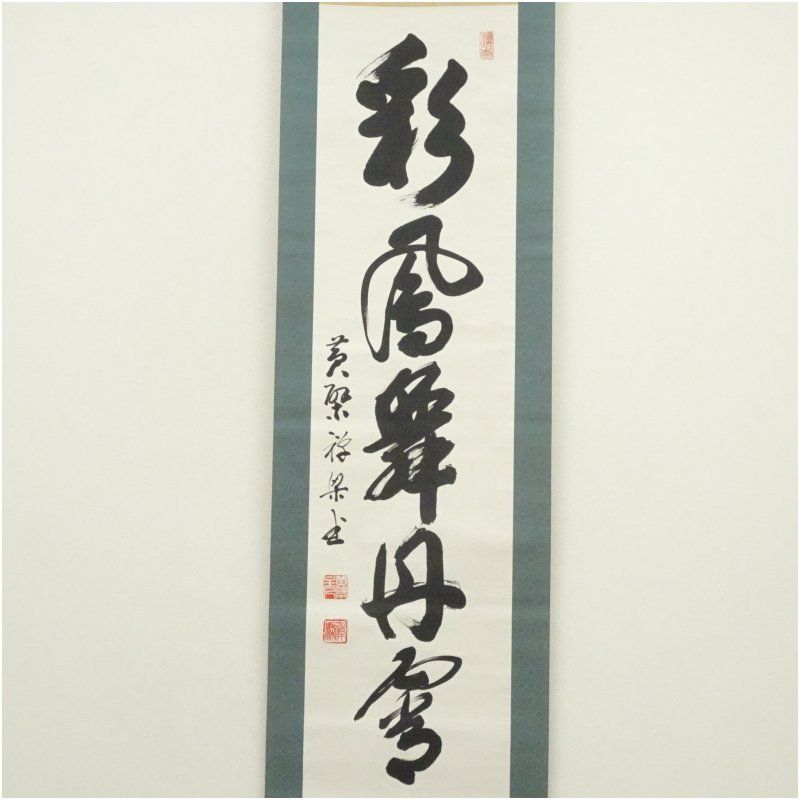 彩鳳舞丹霄
黄檗禅梁書